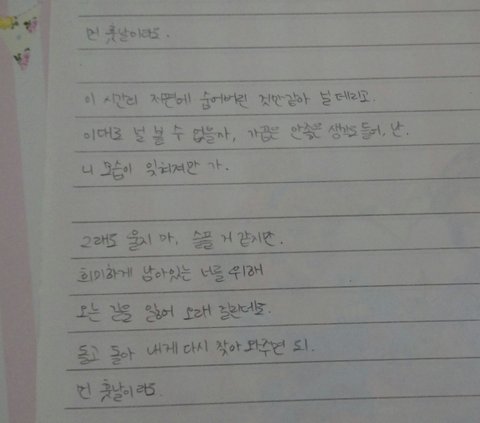 먼 훗날이라도.
이 시간의 저편에 숨어버린 것만같아 널 데리고.
이대로 널 볼 수 없을까, 가끔은 안좋은 생각도 들어, 난.
니 모습이 잊혀져만 가.
그래도 울지 마, 슬플 거 같지만.
희미하게 남아있는 너를 위해
오는 길을 잃어 오래 걸린데도.
돌고 돌아 내게 다시 찾아와주면 되.
먼 훗날이라도.